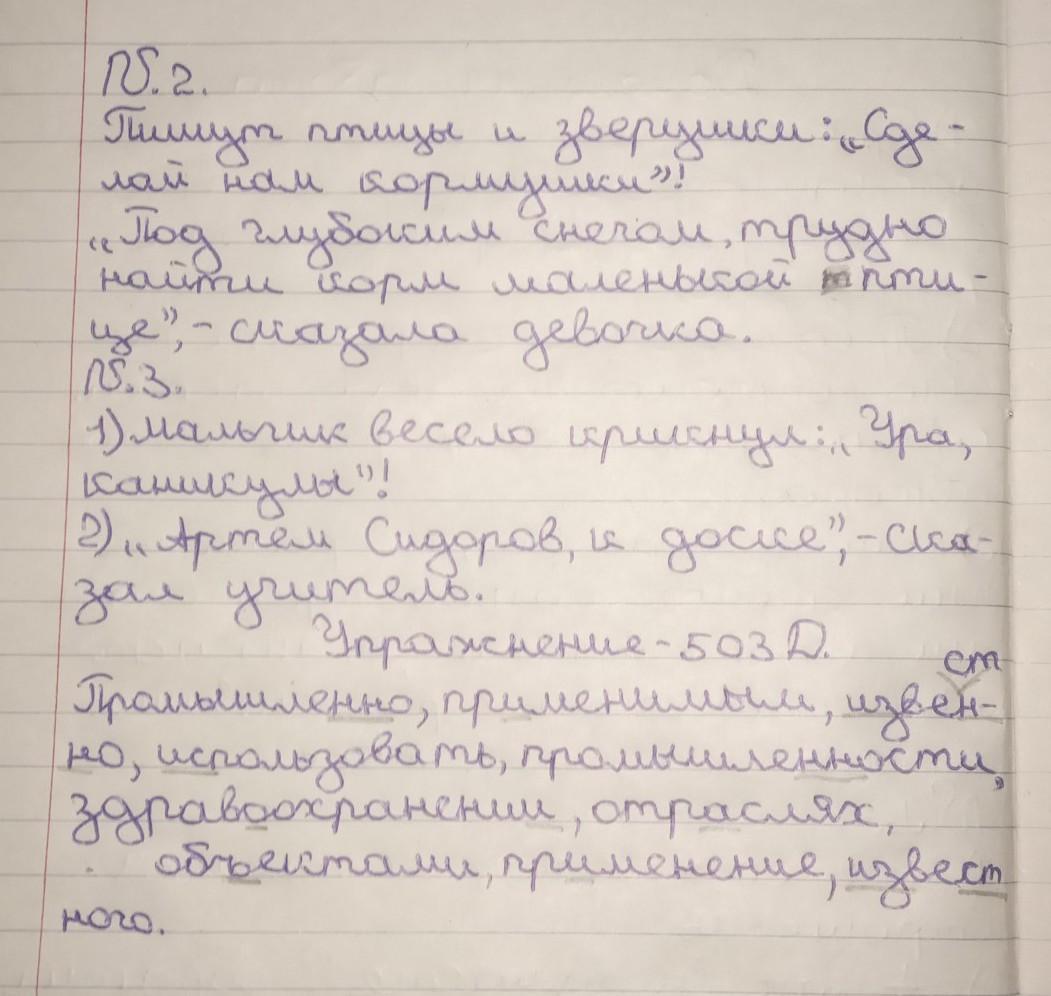 №.2.
Пишут птицы и зверушки: „Сде-
лай нам кормушки”!
„Под глубоким снегом, трудно
найти корм маленькой пти-
це”, - сказала девочка.
№.3.
1) мальчик весело крикнул: „Ура,
каникулы”!
2) „Артем Сидоров, к доске”, - ска-
зал учитель.
Упражнение - 503 D.
ст
Промышленно, применимым, извен-
но, использовать, промышленности,
здравоохранении, отраслях,
объектами, применение, извест
ного.